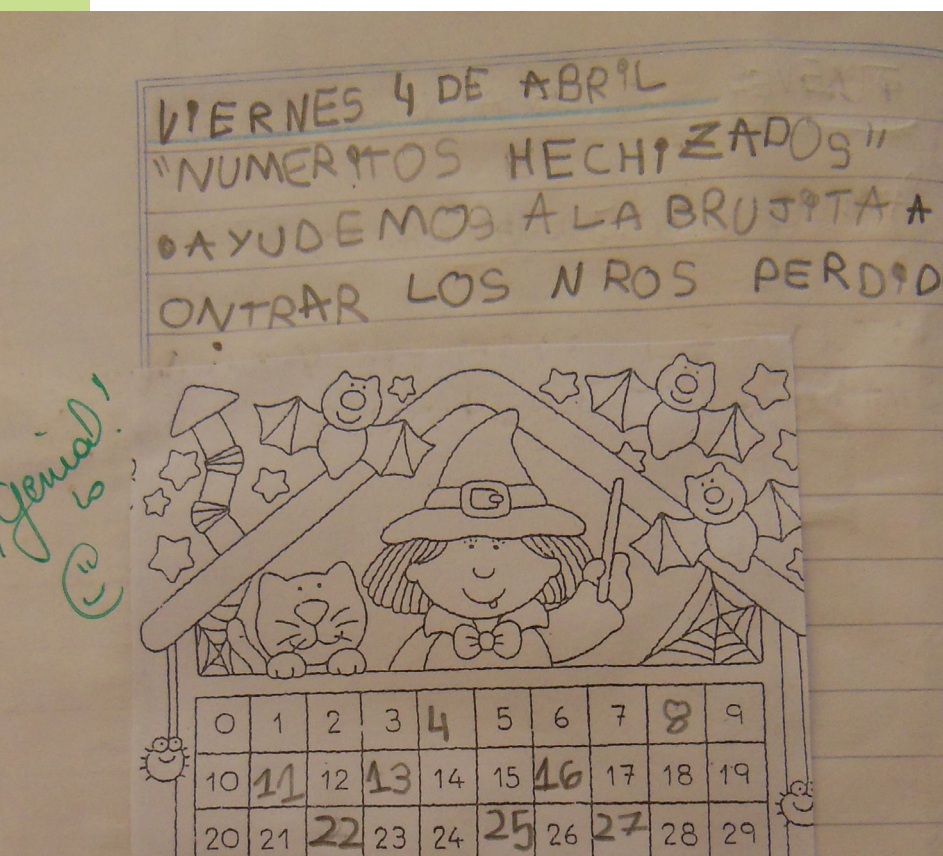 VIERNES 4 DE ABRIL
"NUMERITOS HECHIZADOS"
•AYUDEMOS A LA BRUJITA A
ONTRAR LOS NROS PERDID
¡Genial!
0 1 2 3 4 5 6 7 8 9
10 11 12 13 14 15 16 17 18 19
20 21 22 23 24 25 26 27 28 29